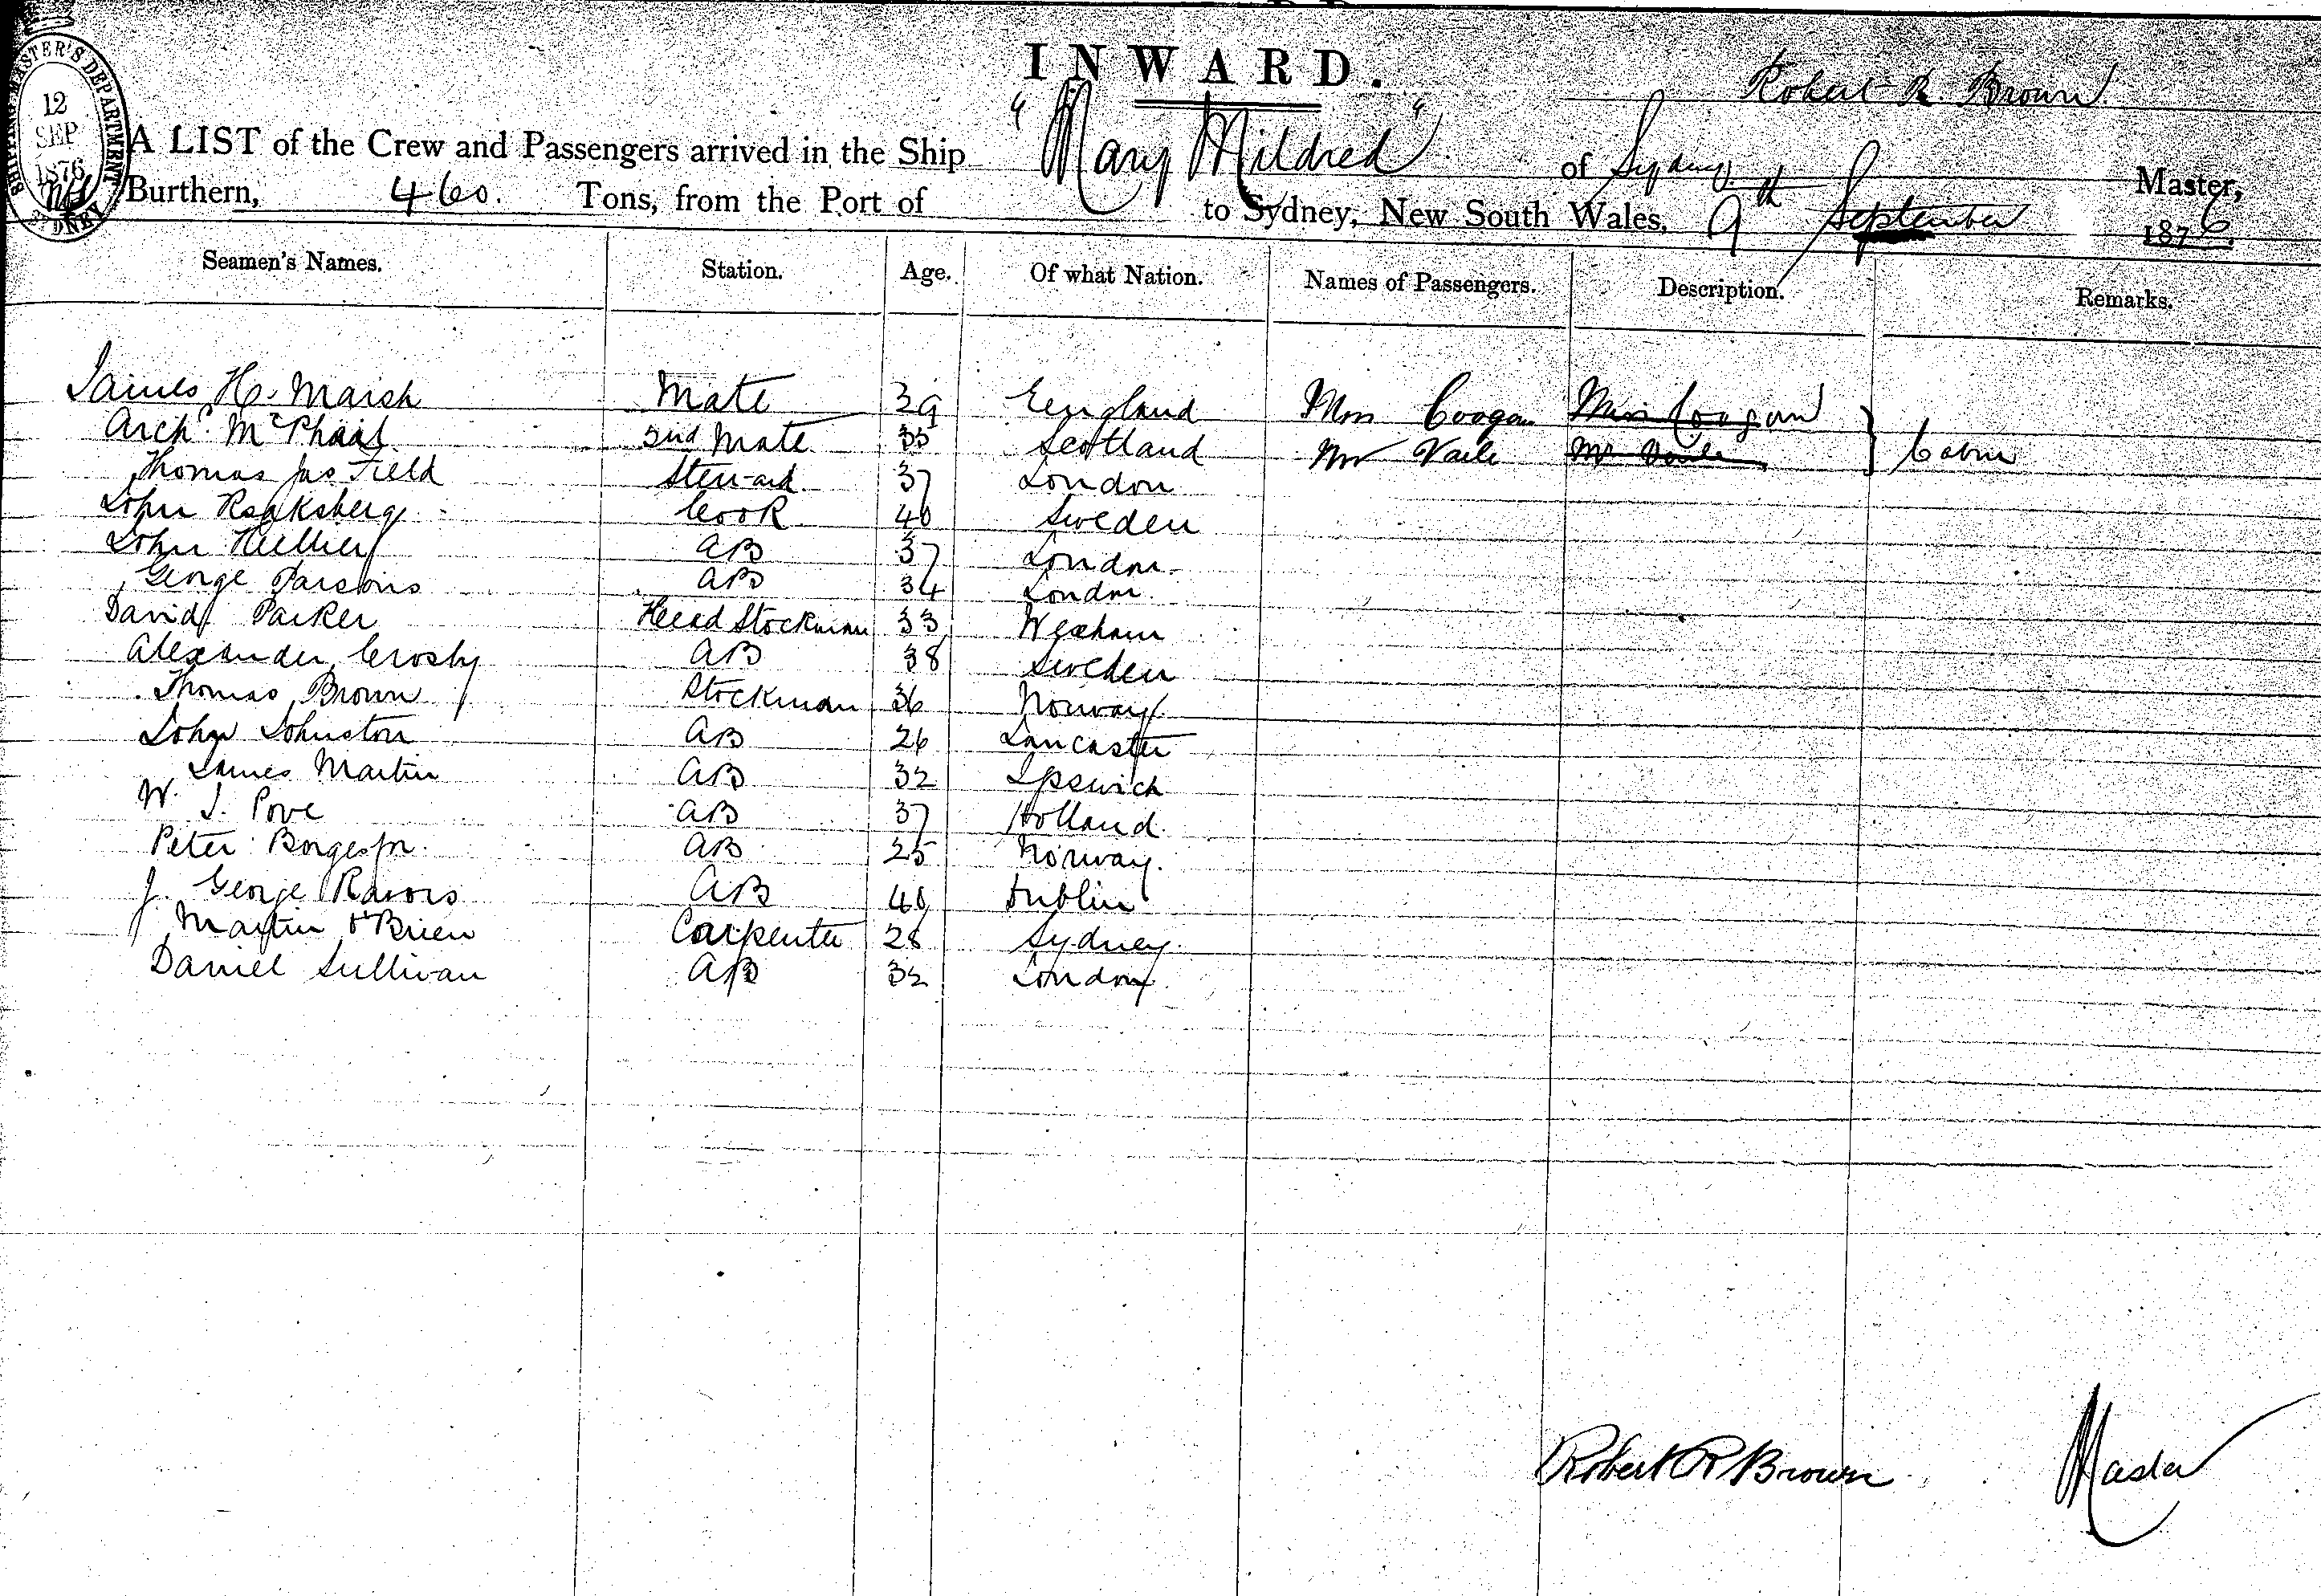 INWARD.
Robert R. Brown
SHIPPING MASTER'S DEPARTMENT
12
SEP
1876
SYDNEY
A LIST of the Crew and Passengers arrived in the Ship "Mary Mildred" of Sydney Master,
Burthern, 460. Tons, from the Port of to Sydney, New South Wales, 9th September 1876.
Seamen's Names. Station. Age. Of what Nation. Names of Passengers. Description. Remarks.
James H. Marsh Mate 39 England Coogan Miss Coogan
Arch'd McPhail 2nd Mate 35 Scotland Mr Vaile Mr Vaile Cabin
Thomas Jas Field Steward 37 London
John Cook 40 Sweden
John Hellier AB 37 London
George Parsons AB 34 London
David Parker Head Stockman 33 Wexham
Alexander Crosby AB 38 Sweden
Thomas Brown Stockman 36 Norway
John Johnston AB 26 Lancaster
James Martin AB 32 Ipswich
W. J. Pove AB 37 Holland
Peter AB 25 Norway.
J. George AB 40 Dublin
Martin O'Brien Carpenter 28 Sydney
Daniel Sullivan AB 32 London
Robert R Brown Master